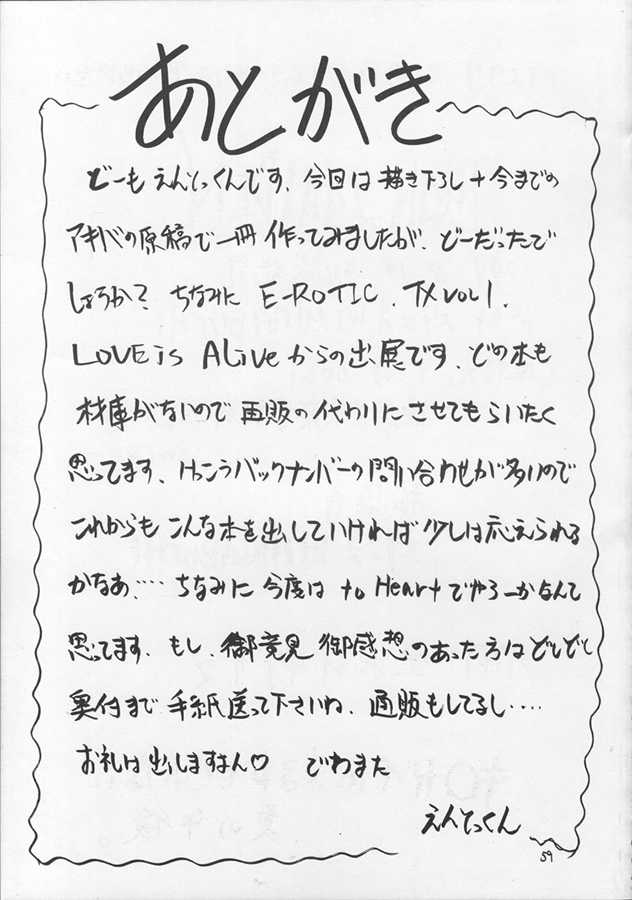 あとがき
どーも えんとっくんです、今回は描き下ろし+今までの
アキバの原稿で一冊作ってみましたが、どーだったで
しょうか? ちなみに E-ROTIC、TX VOL1、
LOVE is ALive からの出展です、どの本も
在庫がないので 再販の代わりに させてもらいたく
思ってます、けっこうバックナンバーの問い合わせが多いので
これからも こんな本を出していければ 少しは応えられる
かなあ、… ちなみに 今度は to Heart でやろーかなんて
思ってます、もし、御意見 御感想のあった方はどしどし
奥付まで 手紙送って下さいね、通販もしてるし‥‥
お礼は出しませぇん♡ でわまた
えんとっくん
59